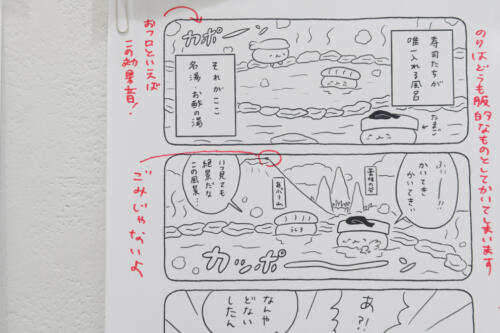 のりはどうも服的なものとしてかいてしまいます
おフロといえば
この効果音!
カポ
寿司たちが
唯一入れる風呂
たまご
それがここ
名湯 お酢の湯
かいてき
かいてきぃ
いつ見ても
絶景だな
この風景…
ごみじゃないよ
カッポ
あ?!
なんや
どない
したん